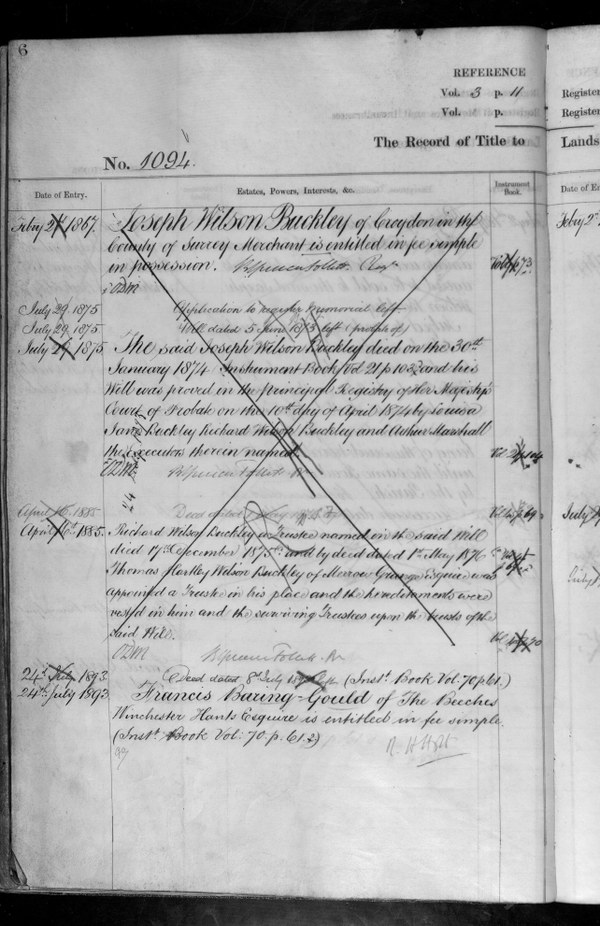 6
REFERENCE
Vol. 3 p. 11
Vol. p.
The Record of Title to
No. 1094.
Date of Entry.
Estates, Powers, Interests, &c.
Instrument Book.
Febry 2nd 1867.
Joseph Wilson Buckley of Croydon in the
County of Surrey Merchant is entitled in fee simple
in possession. Regr
July 29. 1875
Application to register memorial left
July 29. 1875
Will dated 5 June 1873 left
July 29 1875
The said Joseph Wilson Buckley died on the 30th
January 1874. Instrument Book Vol 21 p 103 and his
Will was proved in the principal Registry of Her Majesty's
Court of Probate on the 10th day of April 1874 by Louisa
Jane Buckley Richard Wilson Buckley and Arthur Marshall
the executors therein named.
April 16. 1885
Deed dated
April 16th 1885.
Richard Wilson Buckley a Trustee named in the said Will
died 17th December 1875 and by deed dated 1st May 1876
Thomas Hartley Wilson Buckley of Merrow Grange Esquire was
appointed a Trustee in his place and the hereditaments were
vested in him and the surviving Trustees upon the trusts of the
said Will.
24th July 1893
Deed dated 8th July (Inst. Book Vol. 70 p 61.)
24th July 1893
Francis Baring-Gould of The Beeches
Winchester Hants Esquire is entitled in fee simple.
(Inst. Book Vol: 70 p. 61.)
Register
Register
Lands
Date of En
Febry 2nd
July